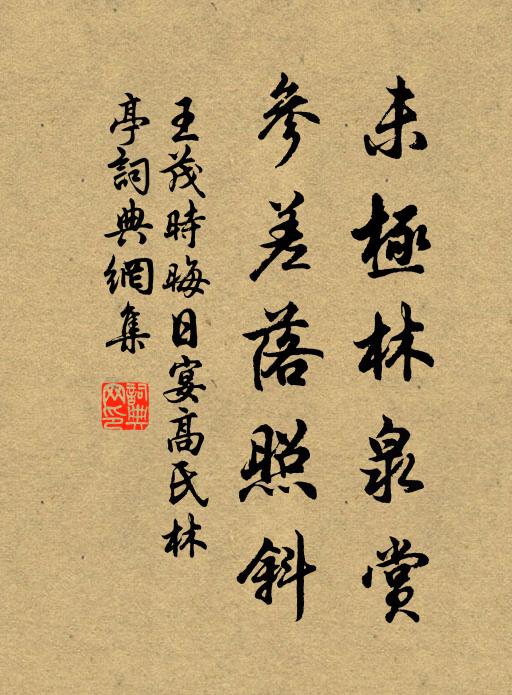 未極林泉賞
參差落照斜
王茂時晦日宴高氏林
亭詞典網集
詞典
网印